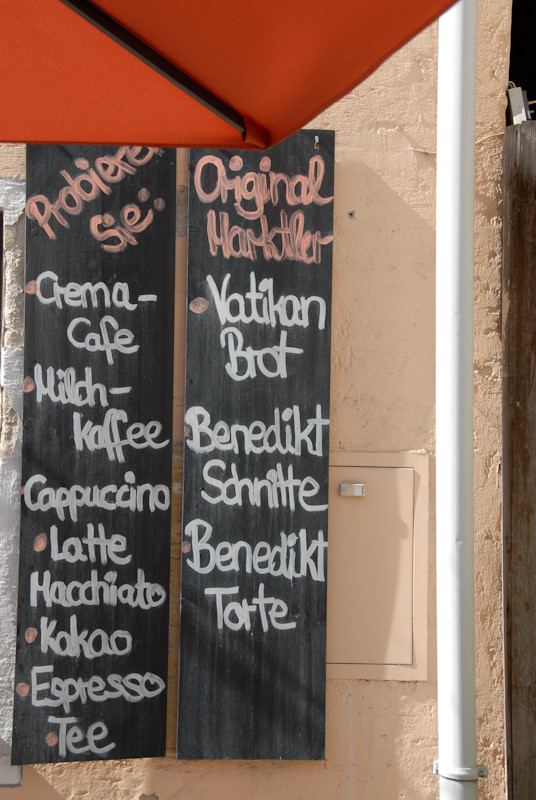 Probieren
Sie:
Crema-
Cafe
Milch-
Kaffee
Cappuccino
Latte
Macchiato
Kakao
Espresso
Tee
Original
Marktler
Vatikan
Brot
Benedikt
Schnitte
Benedikt
Torte